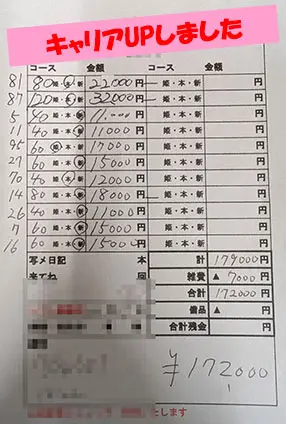 キャリアUPしました
コース 金額 コース 金額
81 80 姫・本・新 22000円 姫・本・新 円
87 120 姫・本・新 32000円 姫・本・新 円
5 40 姫・本・新 11000円 姫・本・新 円
11 40 姫・本・新 11000円 姫・本・新 円
95 60 姫・本・新 17000円 姫・本・新 円
27 60 姫・本・新 15000円 姫・本・新 円
70 40 姫・本・新 12000円 姫・本・新 円
14 80 姫・本・新 18000円 姫・本・新 円
26 40 姫・本・新 11000円 姫・本・新 円
7 60 姫・本・新 15000円 姫・本・新 円
16 60 姫・本・新 15000円 姫・本・新 円
写メ日記 本 計 179000円
来てね 回 雑費 ▲ 7000円
合計 172000円
備品 ▲ 円
合計残金 円
¥172000
たします